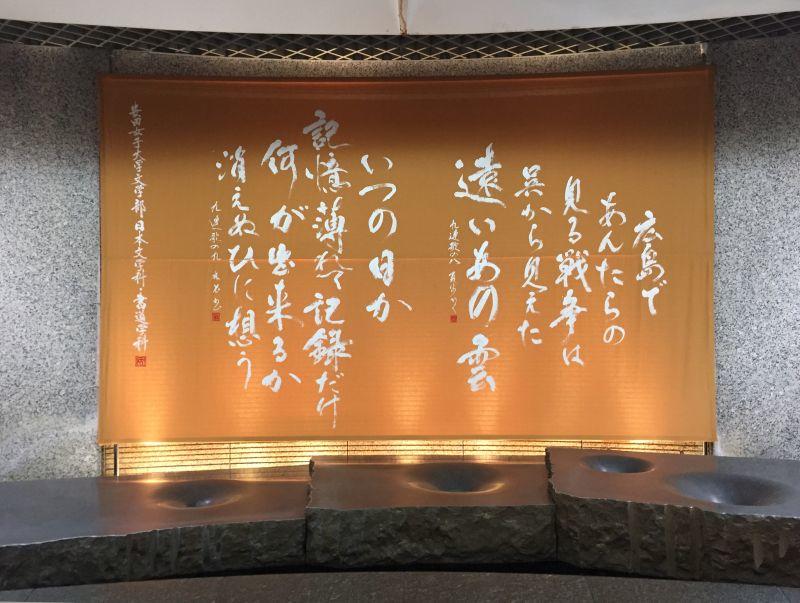 広島で
あんたらの
見る戦争は
呉から見えた
遠いあの雲
九連歌の八
いつの日か
記憶薄れて記録だけ
何が出来るか
消えぬひに想う
九連歌の九
安田女子大学文学部日本文学科・書道学科